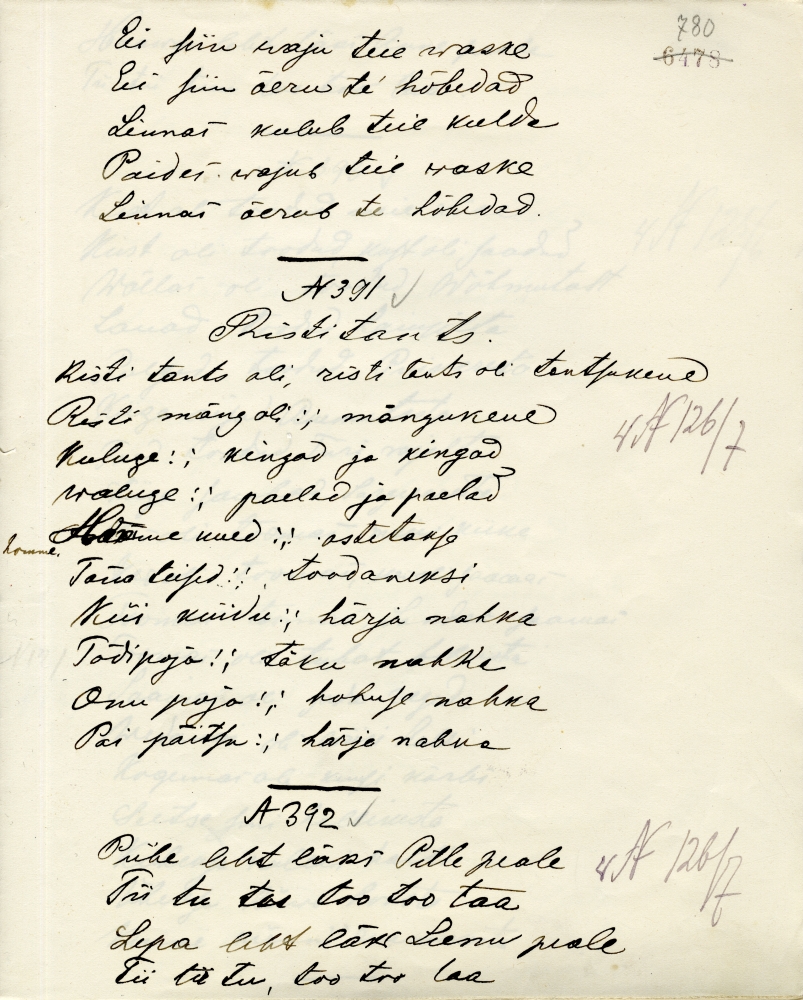 780
6478
Ei siin waju teie waske
Ei siin õeru te hõbedad
Linnas kulub teie kulda
Paides wajub teie waske
Linnas õerub te hõbedad.
N 391
Risti tants.
Risti tants oli, risti tants oli tantsukene
Risti mäng oli :,: mängukene
Kuluge :,: kingad ja kingad
waluge :,: paelad ja paelad
homme uued :,: ostetakse
Tõna teised :,: toodaneksi
Küi küidu :,: härja nahka
Tädipoja :,: täku nahka
Onu poja :,: hobuse nahka
Pai päitsu :,: härja nahka
4 N 126/7
N 392
Pihe leht läks Pitle peale
Tii tu tu too too taa
Lepa leht läks Leenu peale
Tii tii tu, too too taa
4 N 126/7